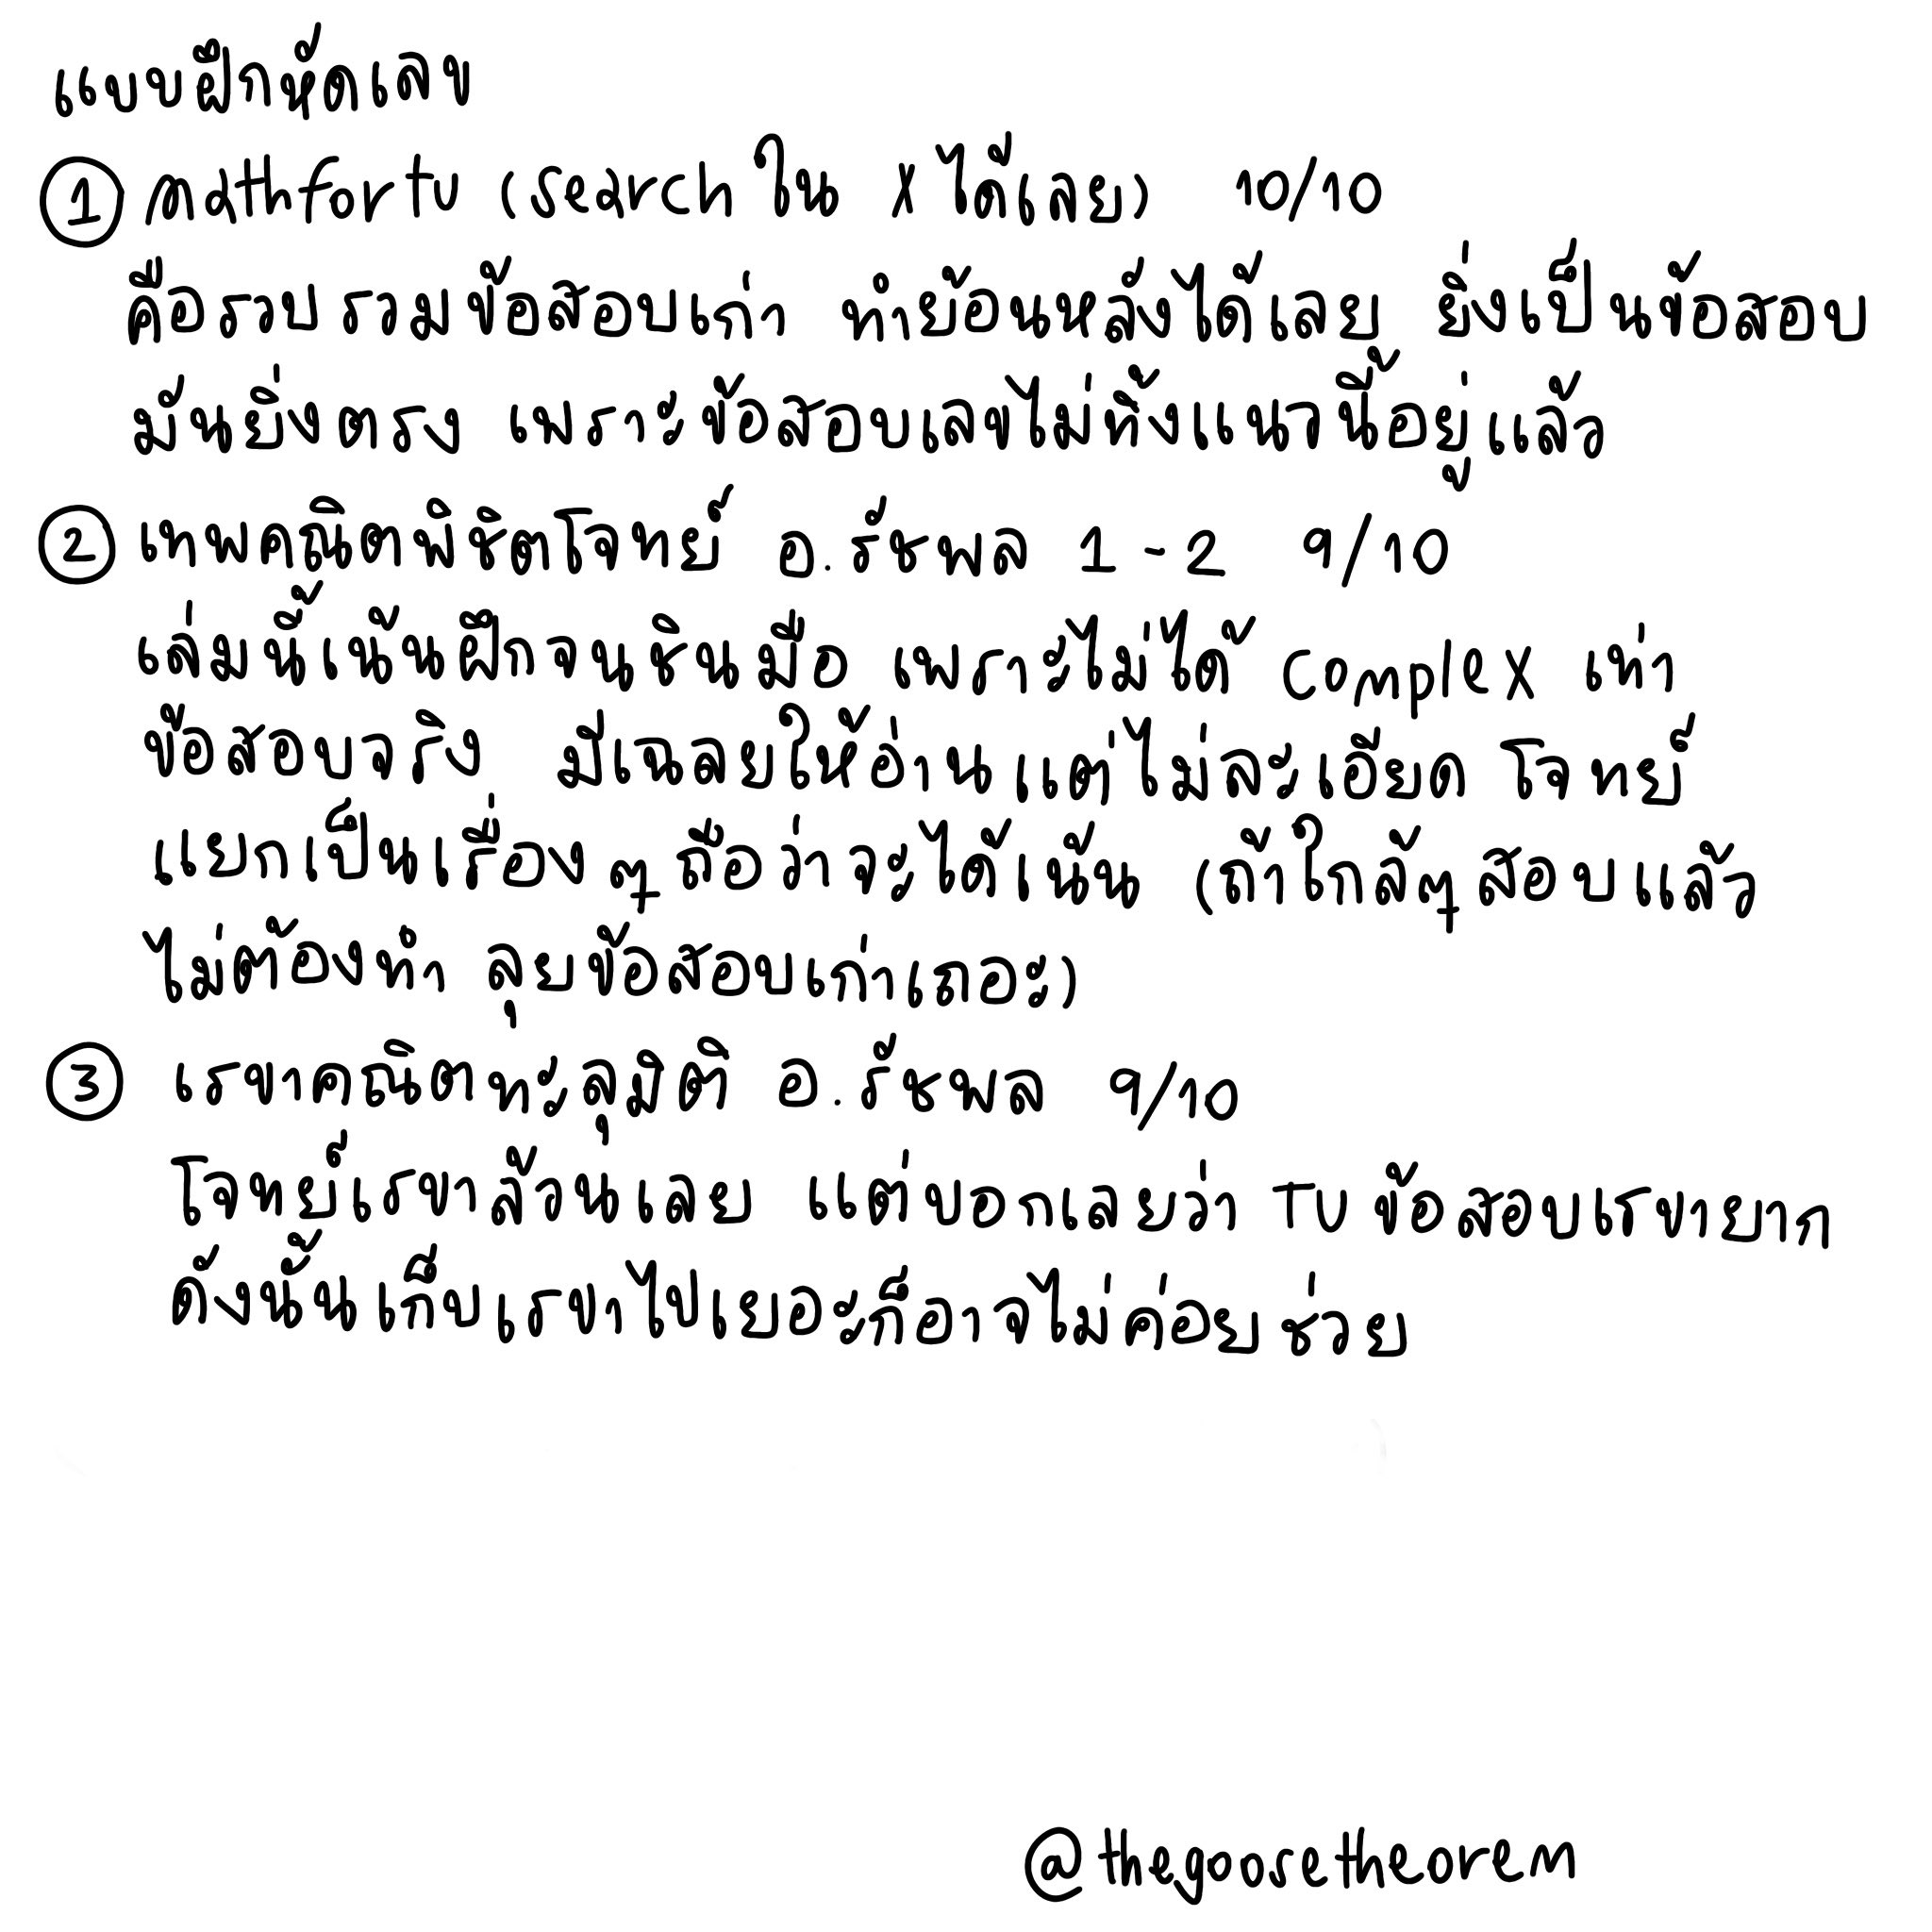 แบบฝึกหัดเลข
① mathfortu (search ใน X ได้เลย) 10/10
คือรวบรวมข้อสอบเก่า ทำย้อนหลังได้เลย ยิ่งเป็นข้อสอบ
มันยิ่งตรง เพราะข้อสอบเลขไม่ทิ้งแนวนี้อยู่แล้ว
② เทพคณิตพิชิตโจทย์ อ.รัชพล 1-2 9/10
เล่มนี้เน้นฝึกจนชินมือ เพราะไม่ได้ complex เท่า
ข้อสอบจริง มีเฉลยให้อ่านแต่ไม่ละเอียด โจทย์
แยกเป็นเรื่องๆถือว่าจะได้เน้น (ถ้าใกล้ๆสอบแล้ว
ไม่ต้องทำ ลุยข้อสอบเก่าเถอะ)
③ เรขาคณิตทะลุมิติ อ.รัชพล 9/10
โจทย์เรขาล้วนเลย แต่บอกเลยว่า TU ข้อสอบเรขายาก
ดังนั้นเก็บเรขาไปเยอะก็อาจไม่ค่อยช่วย
@thegoosetheorem